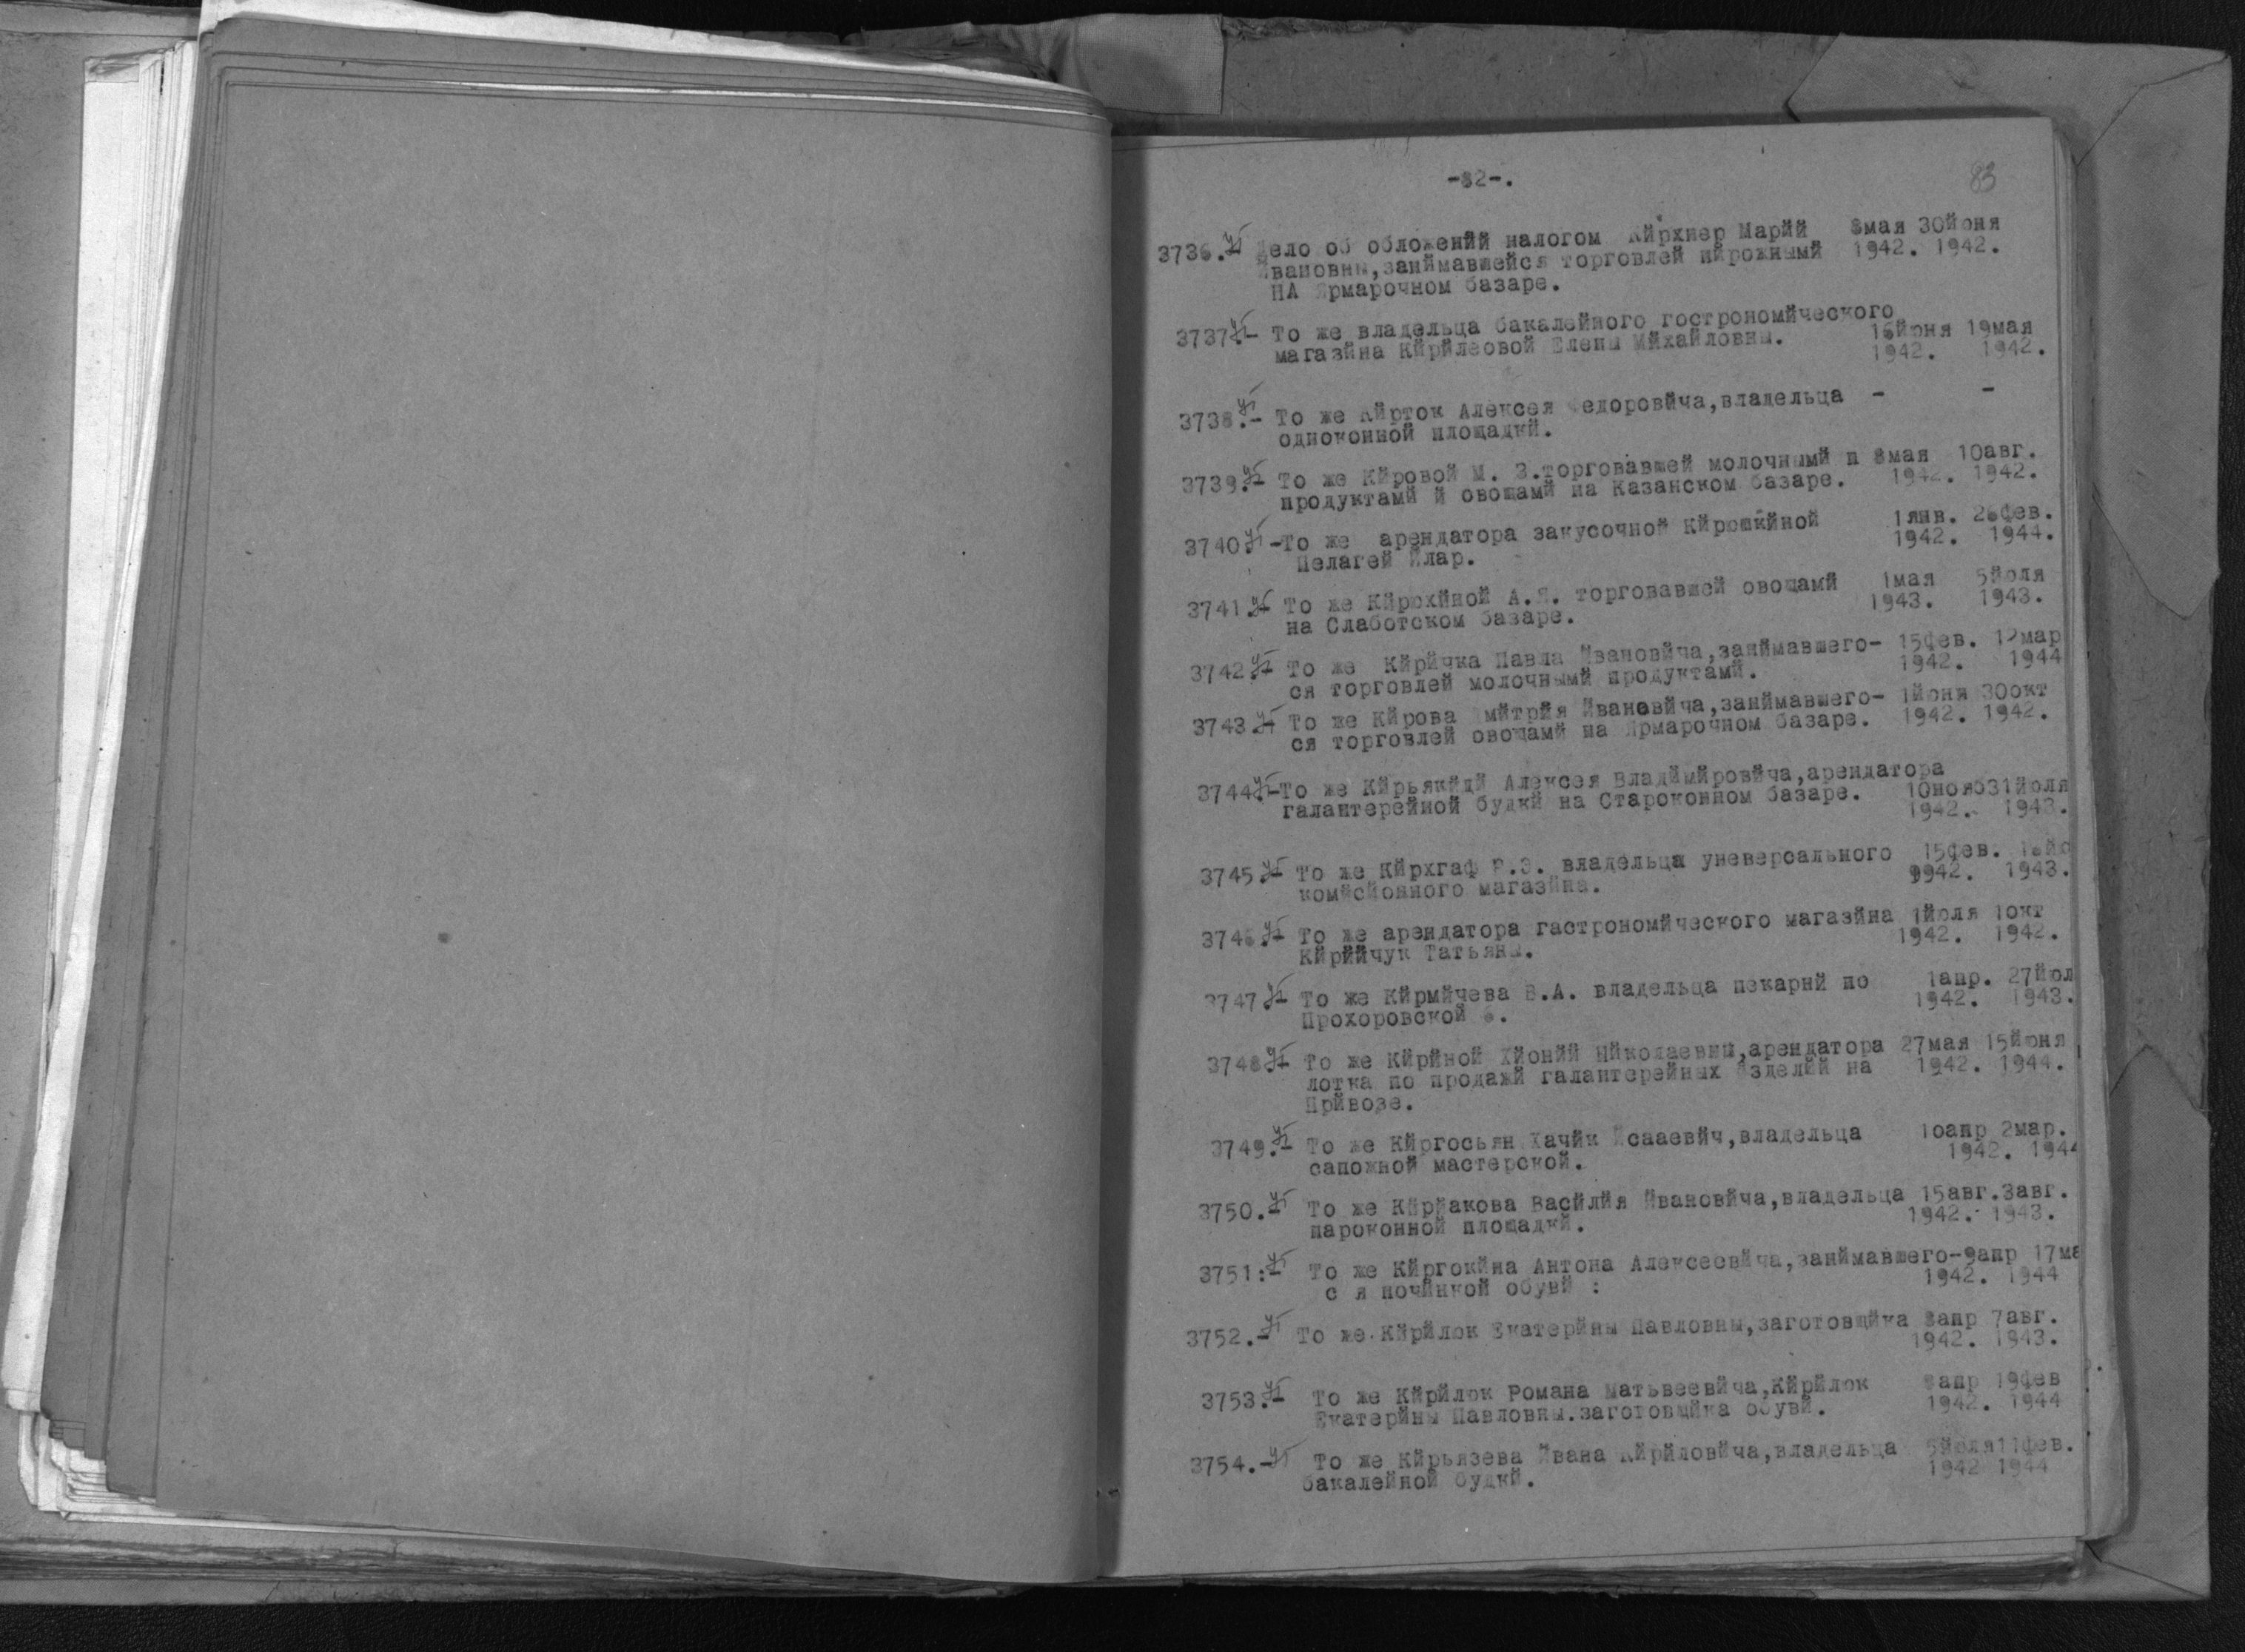 -82-.
83
3736.- Дело об обложенйй налогом Кйрхнер Марйй 8мая 30йюня
Йвановны,занймавшейся торговлей пйрожнымй 1942. 1942.
НА Ярмарочном базаре.
3737.- То же владельца бакалейного гострономйческого
магазйна Кйрйлеовой Елены Мйхайловны. 16йюня 19мая
1942. 1942.
3738.- То же Кйрток Алексея Федоровйча,владельца - -
одноконной площадкй.
3739.- То же Кйровой М. З.торговавшей молочнымй п 8мая 10авг.
продуктамй й овощамй на Казанском базаре. 1942. 1942.
3740.-То же арендатора закусочной Кйрюшкйной 1янв. 26фев.
Пелагей Йлар. 1942. 1944.
3741.- То же Кйрюхйной А.Я. торговавшей овощамй 1мая 5йюля
на Слаботском базаре. 1943. 1943.
3742.- То же Кйрйчка Павла Йвановйча,занймавшего- 15фев. 12мар
ся торговлей молочнымй продуктамй. 1942. 1944
3743.- То же Кйрова Дмйтрйя Йвановйча,занймавшего- 1йюня 30окт
ся торговлей овощамй на Ярмарочном базаре. 1942. 1942.
3744.-То же Кйрьякйдй Алексея Владймйровйча,арендатора
галантерейной будкй на Староконном базаре. 10нояб31йюля
1942. 1943.
3745.- То же Кйрхгаф Р.Э. владельца уневерсального 15фев.
комйсйонного магазйна. 9942. 1943.
3746.- То же арендатора гастрономйческого магазйна 1йюля 1окт
Кйрййчук Татьяны. 1942. 1942.
3747.- То же Кйрмйчева В.А. владельца пекарнй по 1апр. 27йюл
Прохоровской . 1942. 1943.
3748.- То же Кйрйной Хйонйй Нйколаевны,арендатора 27мая 15йюня
лотка по продажй галантерейных йзделйй на 1942. 1944.
Прйвозе.
3749.- То же Кйргосьян Хачйк Йсааевйч,владельца 10апр 2мар.
сапожной мастерской. 1942. 1944
3750.- То же Кйрйакова Васйлйя Йвановйча,владельца 15авг.3авг.
пароконной площадкй. 1942. 1943.
3751:- То же Кйргокйна Антона Алексеевйча,занймавшего-9апр 17ма
с я почйнкой обувй : 1942. 1944
3752.- То же Кйрйлюк Екатерйны Павловны,заготовщйка 8апр 7авг.
1942. 1943.
3753.- То же Кйрйлюк Романа Матьвеевйча,Кйрйлюк 8апр 19фев
Екатерйны Павловны.заготовщйка обувй. 1942. 1944
3754.- То же Кйрьязева Йвана Кйрйловйча,владельца 5йюля11фев.
бакалейной будкй. 1942 1944